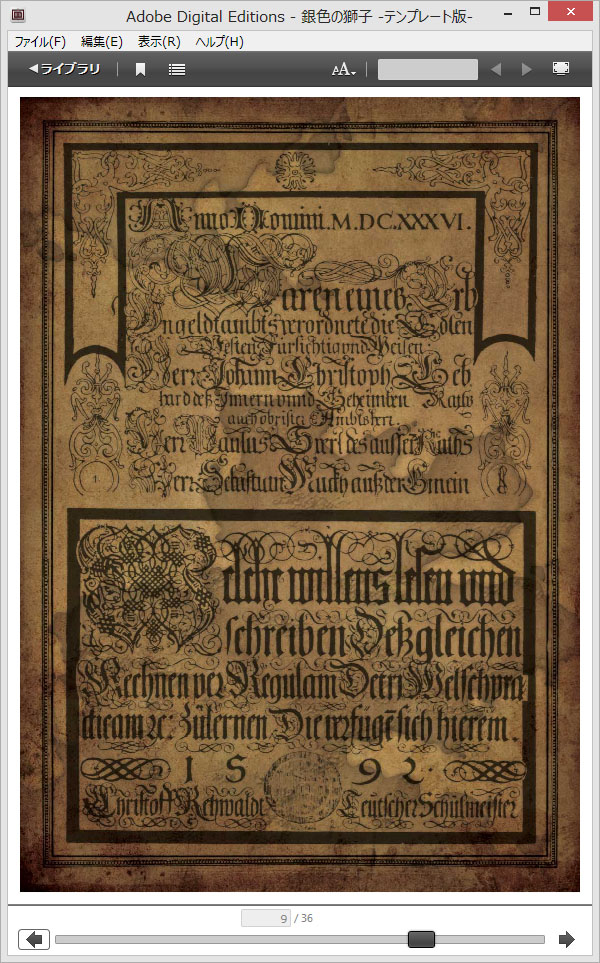 Adobe Digital Editions - 銀色の獅子 -テンプレート版-
ファイル(F) 編集(E) 表示(R) ヘルプ(H)
◀ライブラリ
AA
Anno Domini. M. DC. XXXVI.
Waren eines Erb
Ungeldtambts verordnete die Edlen
Vesten Fürsichtig vnd Weisen
Herr Johann Christoph
auch obrister
Herr Paulus des
Herr Sebastian auß der Gmein
1.
Welche willens lesen und
schreiben Deßgleichen
Rechnen per Regulam Detri Welsch pra
cticam ꝛc: Zůlernen Die verfügē sich hierein.
1 5 9 2
Christoff Rehwaldt Teutscher Schulmeister
9 / 36